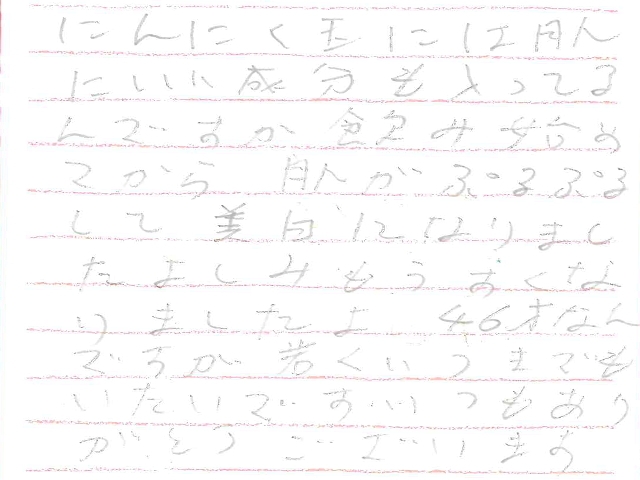 にんにく玉には肌
にいい成分も入ってる
んですか 飲み始め
てから 肌がぷるぷる
して美白になりまし
たよしみもうすくな
りましたよ 46才なん
ですが若くいつまでも
いたいです。いつもあり
がとうございます